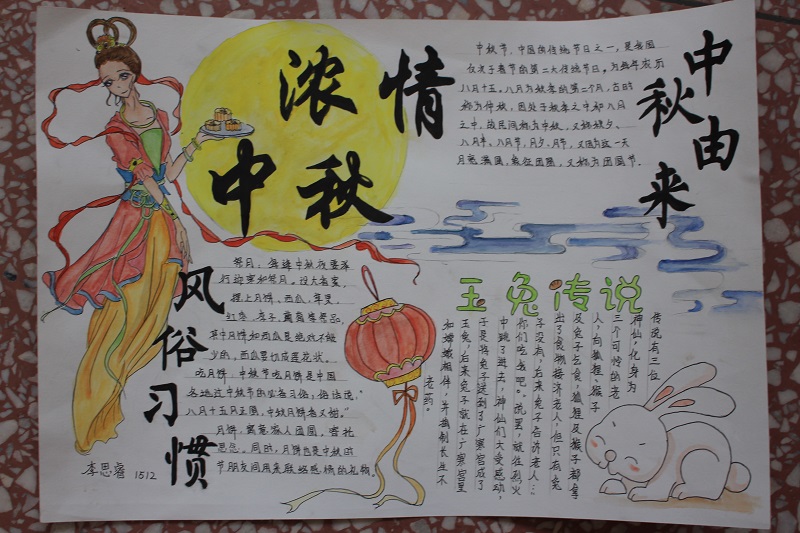 浓情
中秋
中秋由来
中秋节,中国的传统节日之一,是我国
仅次于春节的第二大传统节日。为每年农历
八月十五。八月为秋季的第二个月,古时
称为仲秋,因处于秋季之中和八月
之中,故民间称为中秋,又称秋夕、
八月半、八月节、月夕、月节,又因为这一天
月亮满圆,象征团圆,又称为团圆节。
风俗习惯
祭月:每逢中秋夜要举
行迎寒和祭月。设大香案,
摆上月饼、西瓜、苹果、
红枣、李子、葡萄等祭品,
其中月饼和西瓜是绝对不能
少的,西瓜要切成莲花状。
吃月饼:中秋节吃月饼是中国
各地过中秋节的必备习俗,俗话说:“
八月十五月正圆,中秋月饼香又甜。”
月饼,寓意家人团圆,寄托
思念。同时,月饼也是中秋时
节朋友间用来联络感情的礼物。
李思睿 1512
玉兔传说
传说有三位
神仙,化身为
三个可怜的老
人,向狐狸、猴子
及兔子乞食,狐狸及猴子都拿
出了食物接济老人,但只有兔
子没有,后来兔子告诉老人:“
你们吃我吧。”说罢,就往烈火
中跳了进去,神仙们大受感动,
于是将兔子送到了广寒宫成了
玉兔,后来兔子就在广寒宫里
和嫦娥相伴,并捣制长生不
老药。